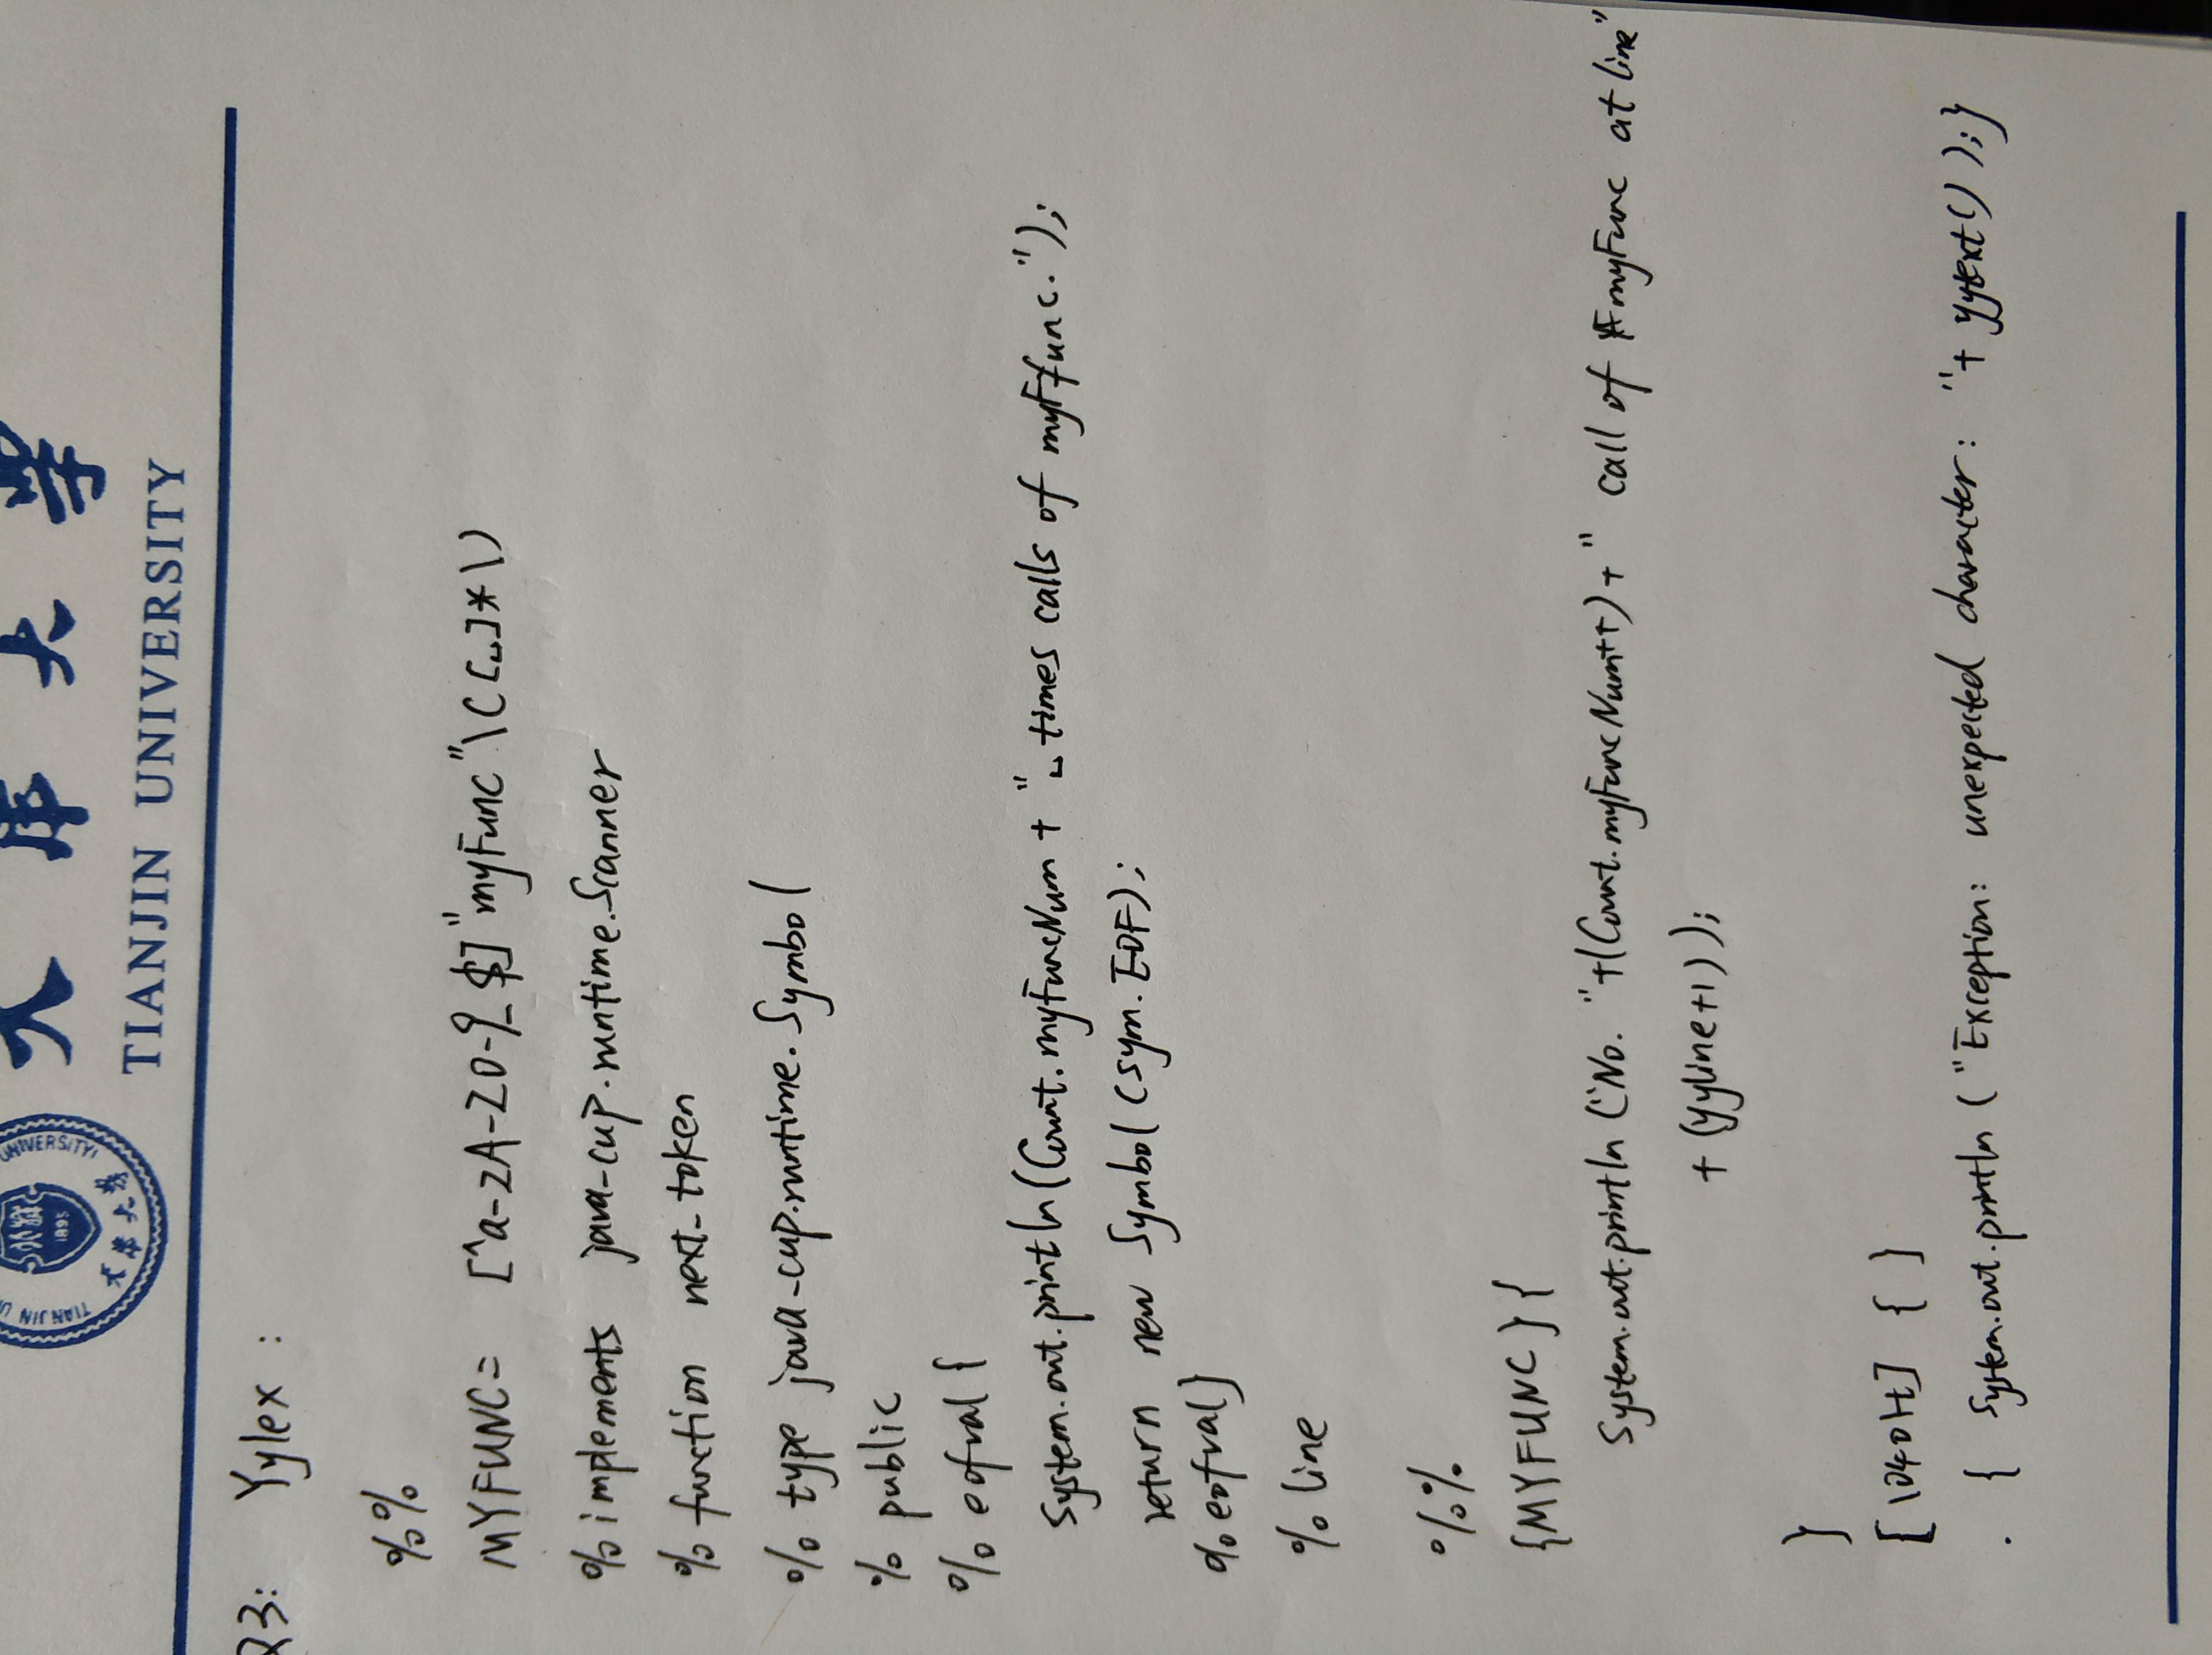 TIANJIN UNIVERSITY
1895
天津大学
天津大学
TIANJIN UNIVERSITY
Q3: Yylex :
%%
MYFUNC= [^a-zA-Z0-9_$]"myFunc"\([␣]*\)
%implements java-cup.runtime.Scanner
%function next-token
% type java-cup.runtime.Symbol
% public
% eofval {
System.out.println(Count.myFuncNum + "␣times calls of myFunc.");
return new Symbol (sym.EOF);
%eofval}
% line
%%
{MYFUNC} {
System.out.println ("No. "+(Count.myFuncNum++) + " call of myFunc at line"
+ (yyline+1));
}
[\040\t] { }
. { System.out.println ("Exception: unexpected character: "+ yytext());}